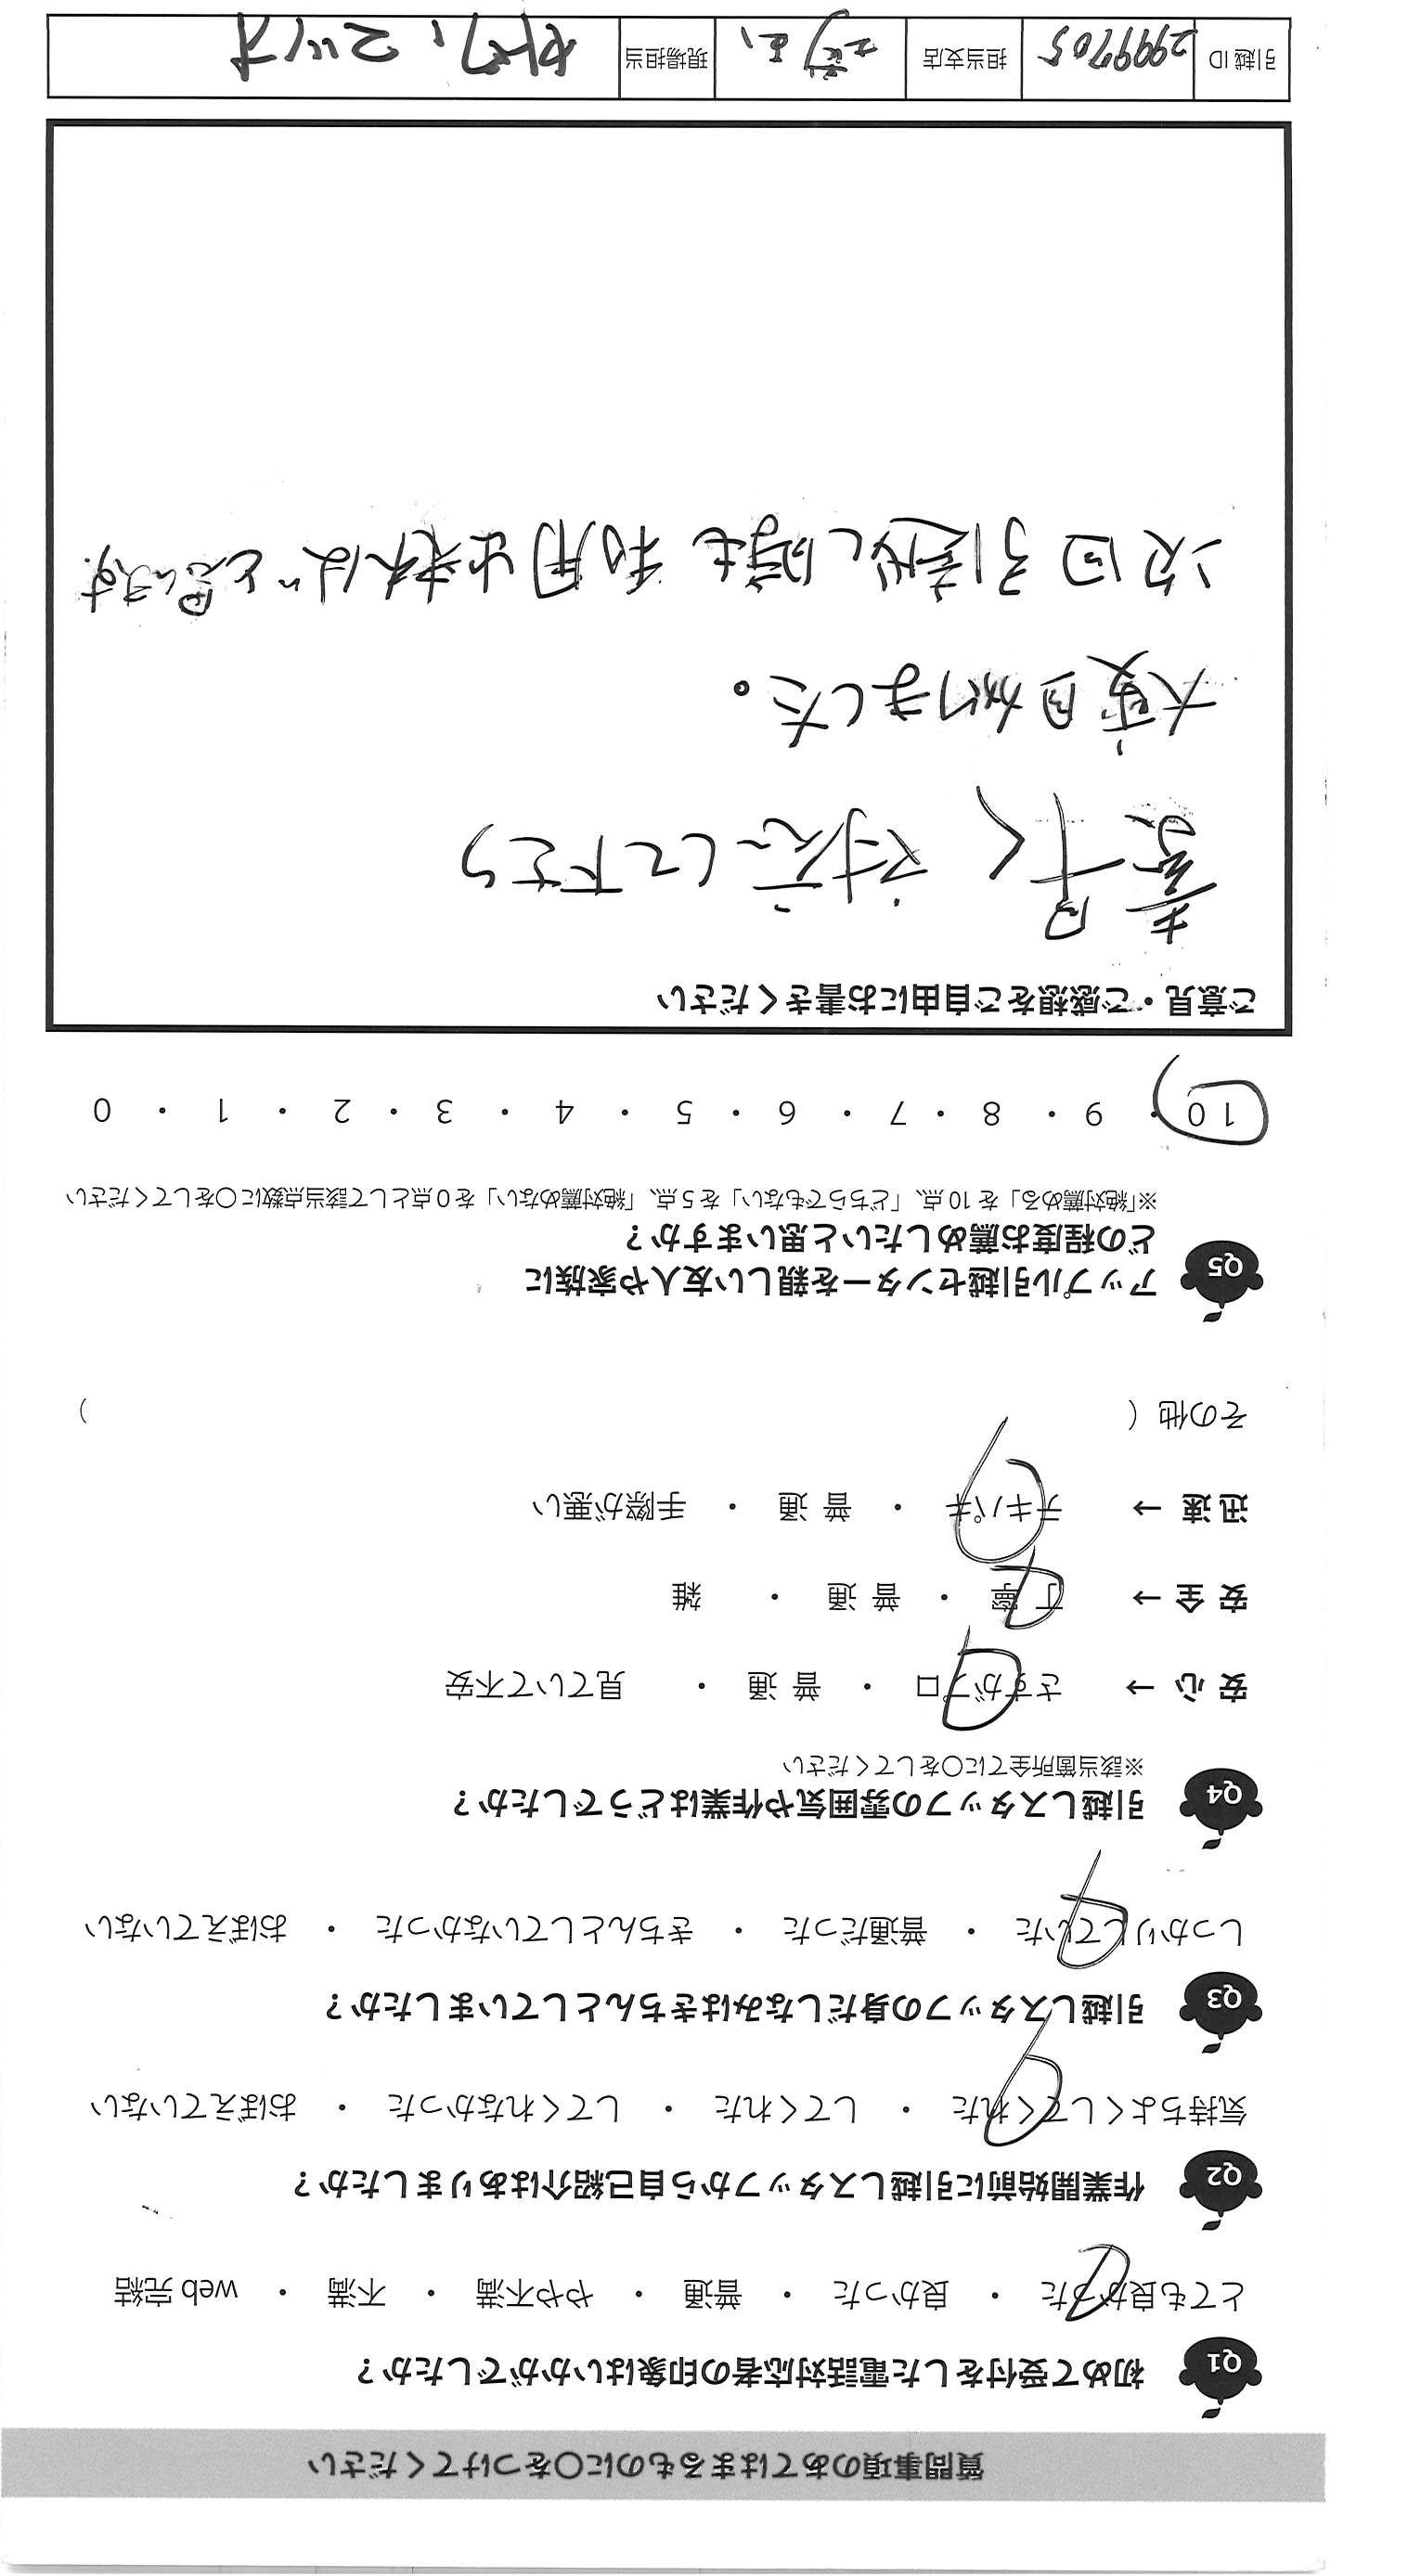 質問事項のあてはまるものに○をつけてください
Q1 初めて受付をした電話対応者の印象はいかがでしたか？
とても良かった ・ 良かった ・ 普通 ・ やや不満 ・ 不満 ・ web 完結
Q2 作業開始前に引越しスタッフから自己紹介はありましたか？
気持ちよくしてくれた ・ してくれた ・ してくれなかった ・ おぼえていない
Q3 引越しスタッフの身だしなみはきちんとしていましたか？
しっかりしていた ・ 普通だった ・ きちんとしていなかった ・ おぼえていない
Q4 引越しスタッフの雰囲気や作業はどうでしたか？
※該当箇所全てに○をしてください
安心 → さすがプロ ・ 普通 ・ 見ていて不安
安全 → 丁寧 ・ 普通 ・ 雑
迅速 → テキパキ ・ 普通 ・ 手際が悪い
その他（ ）
Q5 アップル引越センターを親しい友人や家族に
どの程度お薦めしたいと思いますか？
※「絶対薦める」を 10 点、「どちらでもない」を 5 点、「絶対薦めない」を 0 点として該当点数に○をしてください
10 ・ 9 ・ 8 ・ 7 ・ 6 ・ 5 ・ 4 ・ 3 ・ 2 ・ 1 ・ 0
ご意見・ご感想をご自由にお書きください
素早く対応して下さり
大変助かりました。
次回引越し時も利用出来ればと思います。
引越 ID 2999705 担当支店 現場担当